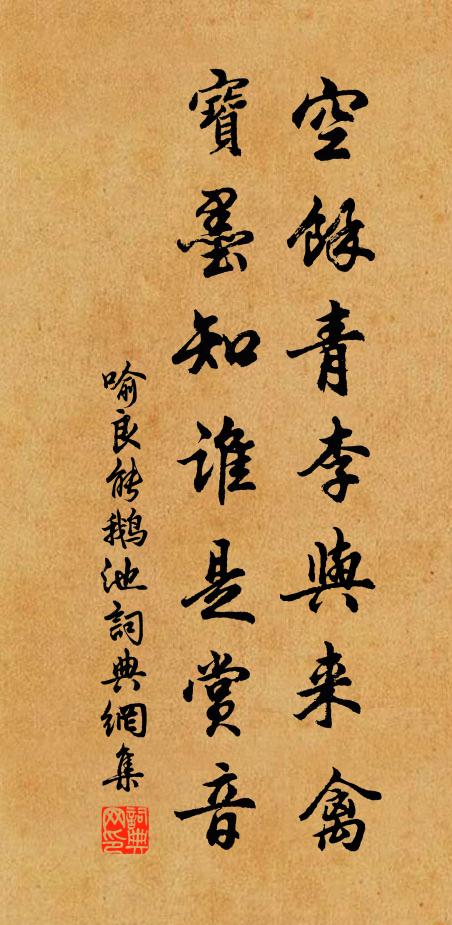 空餘青李與来禽
寶墨知誰是賞音
喻良能鵝池詞典網集
詞典网印